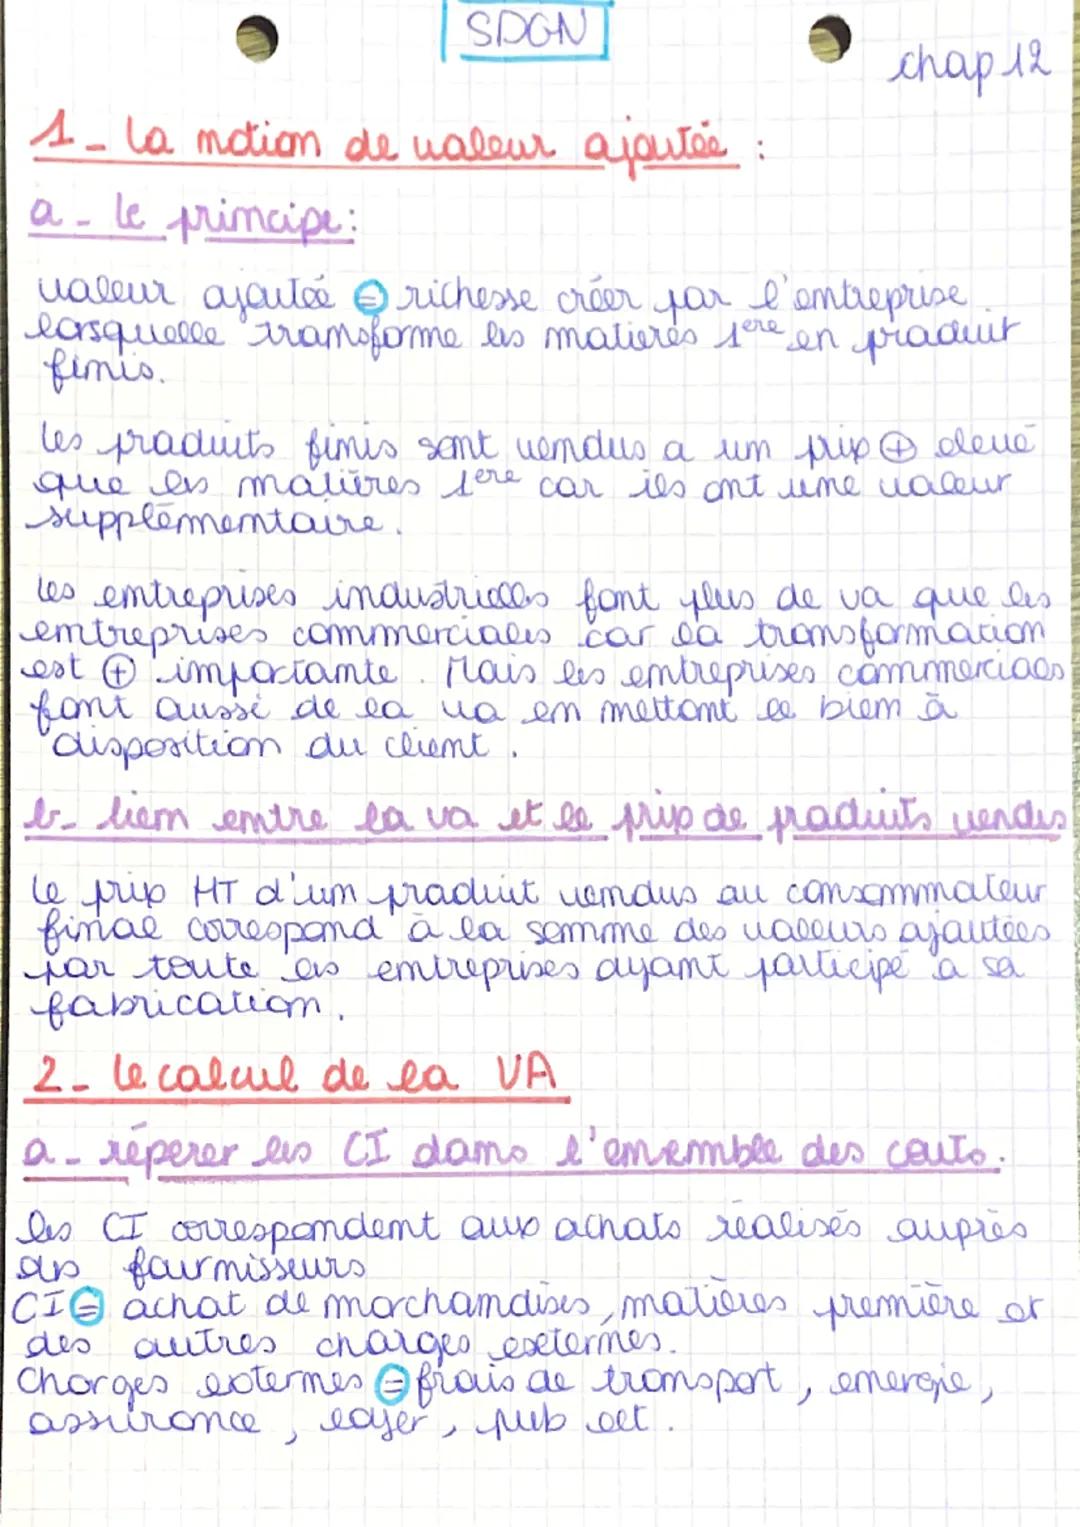 SDGN
chap 12
1 - la notion de valeur ajoutée :
a - le principe :
valeur ajoutée = richesse créer par l'entreprise
lorsquelle transforme les matières 1ere en produit
finis.
les produits finis sont vendus a un prix + elevé
que les matières 1ere car ils ont une valeur
supplémentaire.
les entreprises industrielles font plus de va que les
entreprises commerciales car la transformation
est + importante. Mais les entreprises commerciales
font aussi de la va en mettant le bien à
disposition du client.
b - lien entre la va et le prix de produits vendus
le prix HT d'un produit vendus au consommateur
final correspond à la somme des valeurs ajoutées
par toute les entreprises ayant participé a sa
fabrication.
2 - le calcul de la VA
a - réperer les CI dans l'ensemble des couts.
les CI correspondent aux achats réalisés auprès
des fournisseurs
CI = achat de marchandises, matières première et
des autres charges externes.
Charges externes = frais de transport, energie,
assurance, loyer, pub ect.